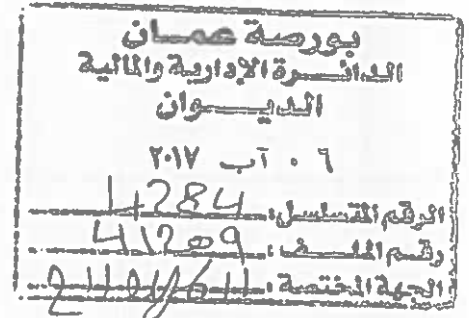 بورصة عمان
الدائرة الإدارية والمالية
الديوان
٠٦ آب ٢٠١٧
الرقم المتسلسل: 4284
رقم الملف: 41259
الجهة المختصة: